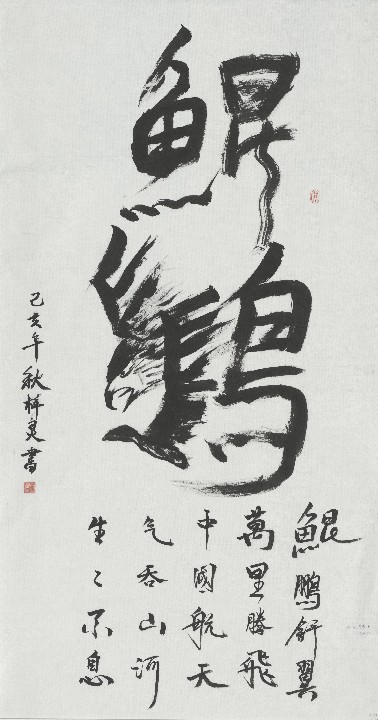 鯤鵬
鯤鵬舒翼
萬里騰飛
中國航天
气吞山河
生々不息
己亥年秋書